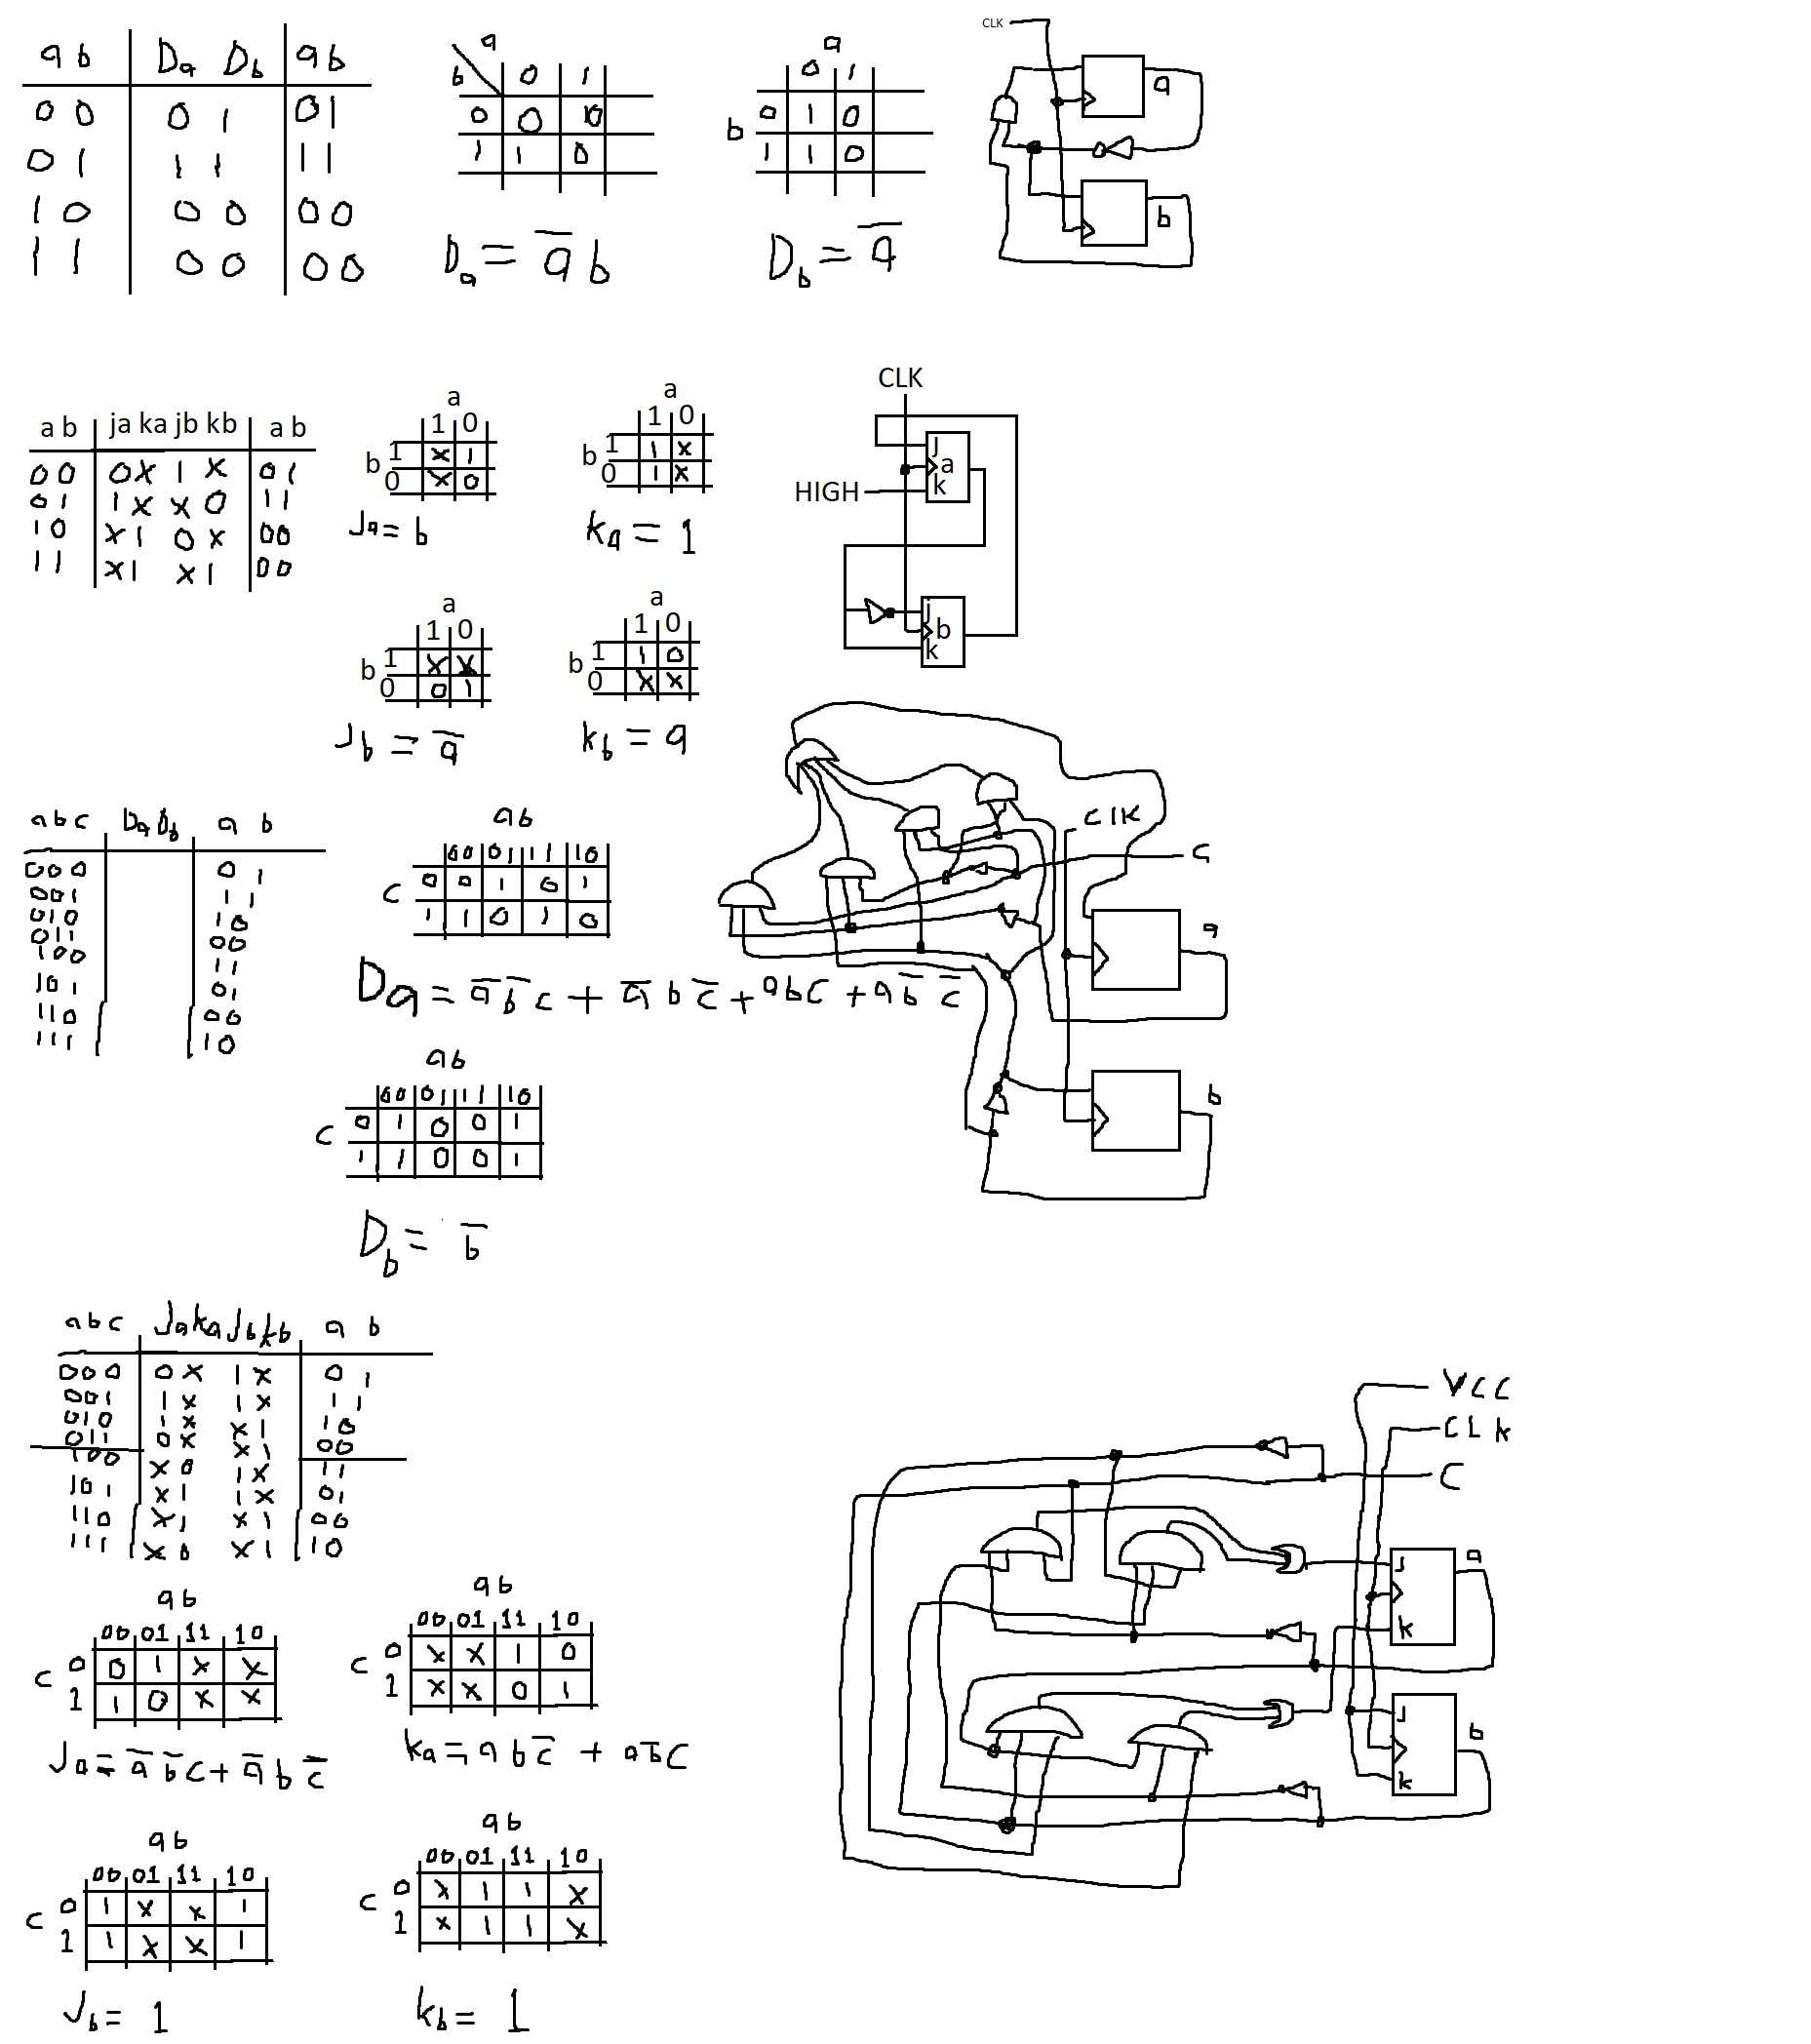 a b Da Db a b
0 0 0 1 0 1
0 1 1 1 1 1
1 0 0 0 0 0
1 1 0 0 0 0
a
b 0 1
0 0 0
1 1 0
Da = a̅ b
a
0 1
b 0 1 0
1 1 0
Db = a̅
CLK
a
b
a b ja ka jb kb a b
0 0 0 x 1 x 0 1
0 1 1 x x 0 1 1
1 0 x 1 0 x 0 0
1 1 x 1 x 1 0 0
a
1 0
b 1 x 1
0 x 0
Ja = b
a
1 0
b 1 1 x
0 1 x
Ka = 1
a
1 0
b 1 x x
0 0 1
Jb = a̅
a
1 0
b 1 1 0
0 x x
Kb = a
CLK
HIGH
j
a
k
j
b
k
a b c Da Db a b
0 0 0 0 1
0 0 1 1 1
0 1 0 1 0
0 1 1 0 0
1 0 0 1 1
1 0 1 0 1
1 1 0 0 0
1 1 1 1 0
ab
00 01 11 10
c 0 0 1 0 1
1 1 0 1 0
Da = a̅ b̅ c + a̅ b c̅ + a b c + a b̅ c̅
ab
00 01 11 10
c 0 1 0 0 1
1 1 0 0 1
Db = b̅
CLK
a
b
a b c Ja Ka Jb Kb a b
0 0 0 0 x 1 x 0 1
0 0 1 1 x 1 x 1 1
0 1 0 1 x x 1 1 0
0 1 1 0 x x 1 0 0
1 0 0 x 0 1 x 1 1
1 0 1 x 1 1 x 0 1
1 1 0 x 1 x 1 0 0
1 1 1 x 0 x 1 1 0
ab
00 01 11 10
c 0 0 1 x x
1 1 0 x x
Ja = a̅ b̅ c + a̅ b c̅
ab
00 01 11 10
c 0 x x 1 0
1 x x 0 1
Ka = a b c̅ + a b̅ c
ab
00 01 11 10
c 0 1 x x 1
1 1 x x 1
Jb = 1
ab
00 01 11 10
c 0 x 1 1 x
1 x 1 1 x
Kb = 1
VCC
CLK
C
J
a
k
J
b
k